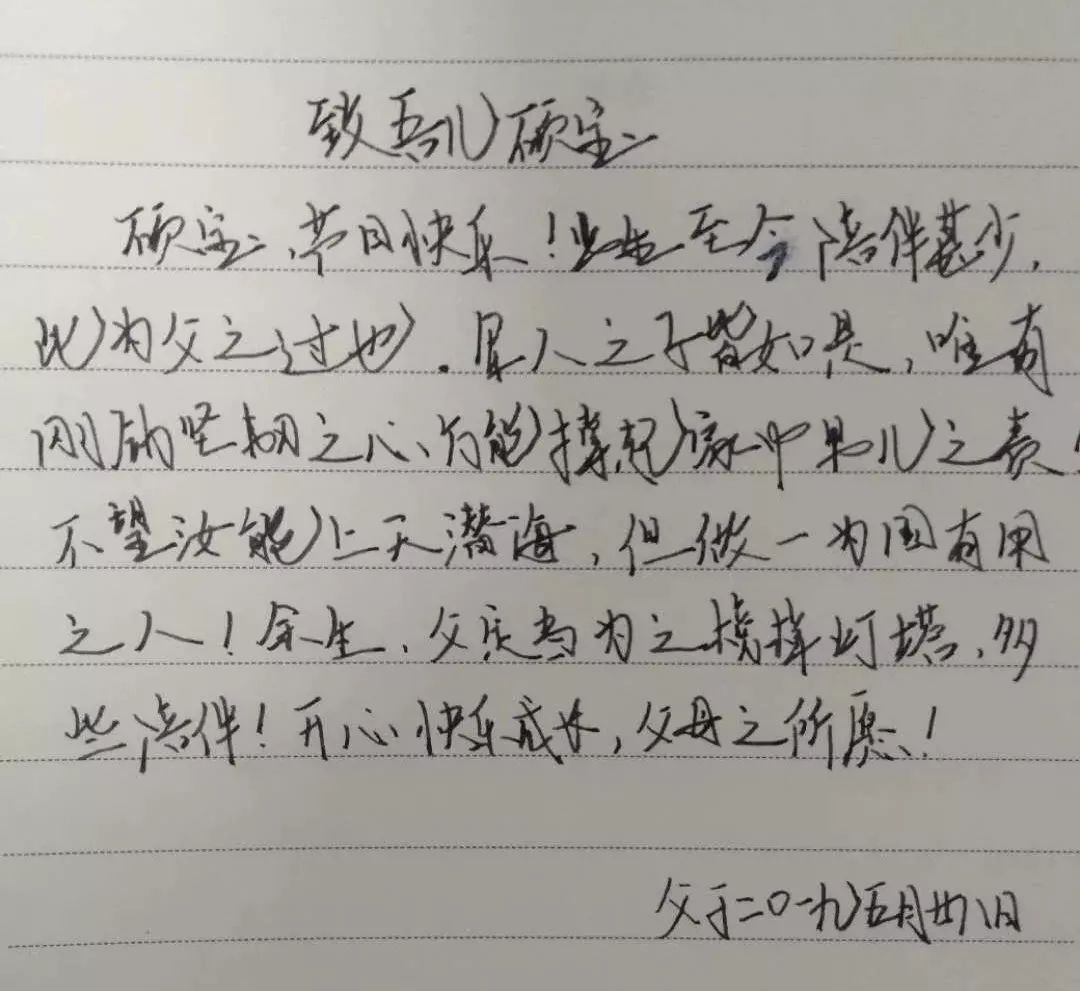 致吾儿硕宝
硕宝、节日快乐！出生至今陪伴甚少，
此为父之过也。军人之子皆如是，唯有
刚韧坚韧之心、方能撑起家中男儿之责
不望汝能上天潜海，但做一为国有用
之人！余生，父定当为之指挥灯塔、多
些陪伴！开心快乐成长，父母之所愿！
父于二〇一九五月廿八日